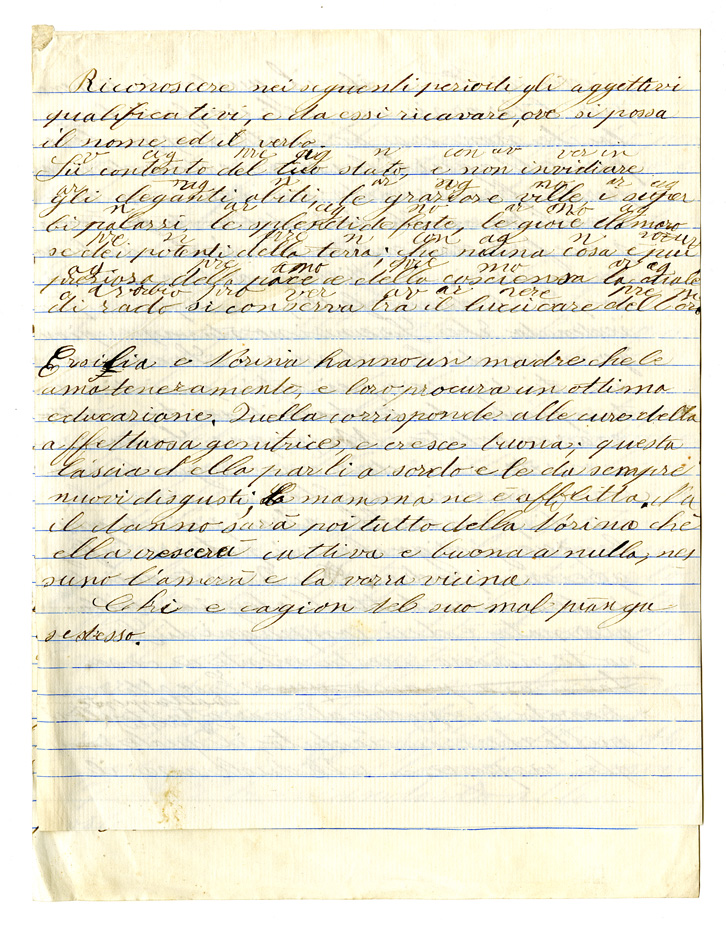 Riconoscere nei seguenti periodi gli aggettivi
qualificativi, e da essi ricavare, ove si possa
il nome ed il verbo.
v ag pre ag n con av ver in
Sii contento del tuo stato, e non invidiare
ar ag n ar ag no ar ag
gli eleganti abiti, le graziose ville, i super
n ar ag no ar no ag
bi palazzi, le splendide feste, le gioie clamoro
pre n pre n con ag n
se dei potenti della terra; che niuna cosa è piu
ag pre pre no ar ag
preziosa della pace e della coscienza la quale
pro ver av ar pre n
di rado si conserva tra il luccicare dell'oro
Ersilia e Norina hanno un madre che le
ama teneramente, e loro procura un ottima
educazione. Quella corrisponde alle cure della
affettuosa genitrice, e cresce buona; questa
lascia ch'ella parli a sordo e le da sempre
nuovi disgusti; La mamma ne è afflitta. Ma
il danno sarà poi tutto della Norina chè
ella crescerà cattiva e buona a nulla, nes
suno l'amerà e la vorra vicina
Chi e cagion del suo mal pianga
se stesso.